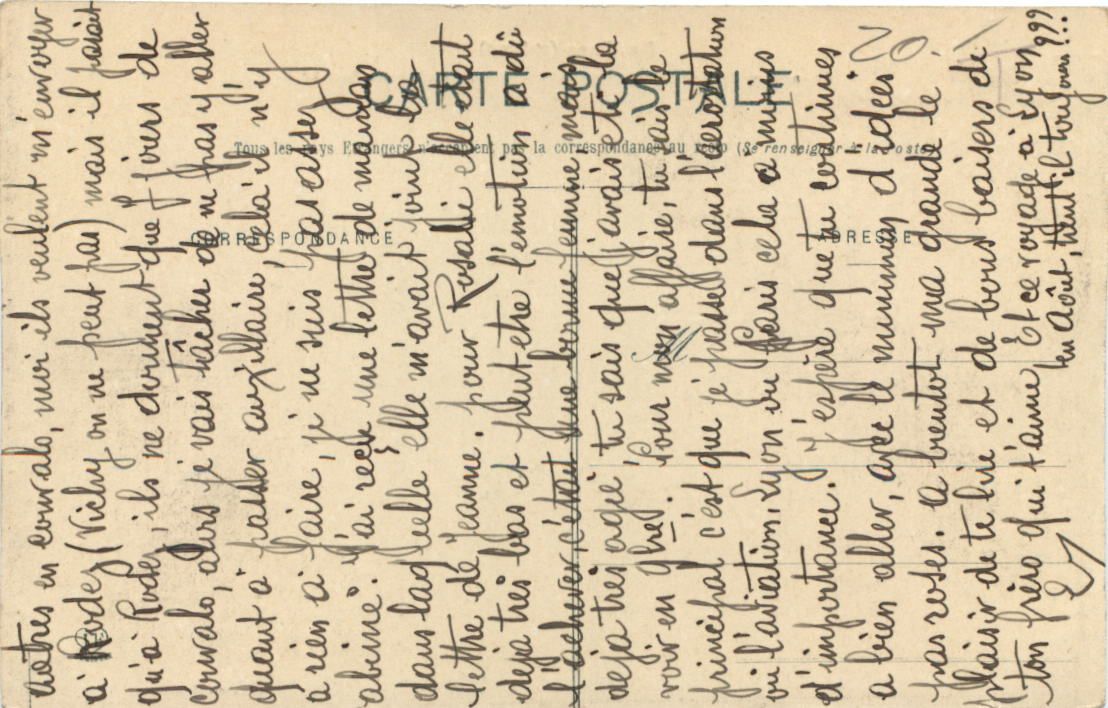 CARTE POSTALE
Tous les Pays Etrangers n'acceptent pas la correspondance au recto (Se renseigner à la Poste)
CORRESPONDANCE
ADRESSE
20
autres en convalo, moi ils veulent m'envoyer
à Rodez (Vichy on ne peut pas) mais il parait
qu'à Rodez, ils ne donnent que 7 jours de
convalo, alors je vais tâcher de ne pas y aller
quant à passer auxiliaire, cela il n'y
a rien à faire, je ne suis pas assez
abimé. J'ai reçu une lettre de maman
dans laquelle elle m'avait joint la
lettre de Jeanne. pour Rosalie elle était
déja très bas et peut être l'émotion a dû
l'achever, c'était une bonne femme, mais
déja très agé tu sais que j'avais été la
voir en Pour mon affaire, tu sais le
principal c'est que je passe dans l'aérostation
ou l'aviation, Lyon ou Paris cela a moins
d'importance. J'espère que tu continues
a bien aller, avec le minimum d'idées
pas roses. a bientot ma grande le
plaisir de te lire et de bons baisers de
ton frèro qui t'aime Et ce voyage à Lyon
en Août, tient il toujours???